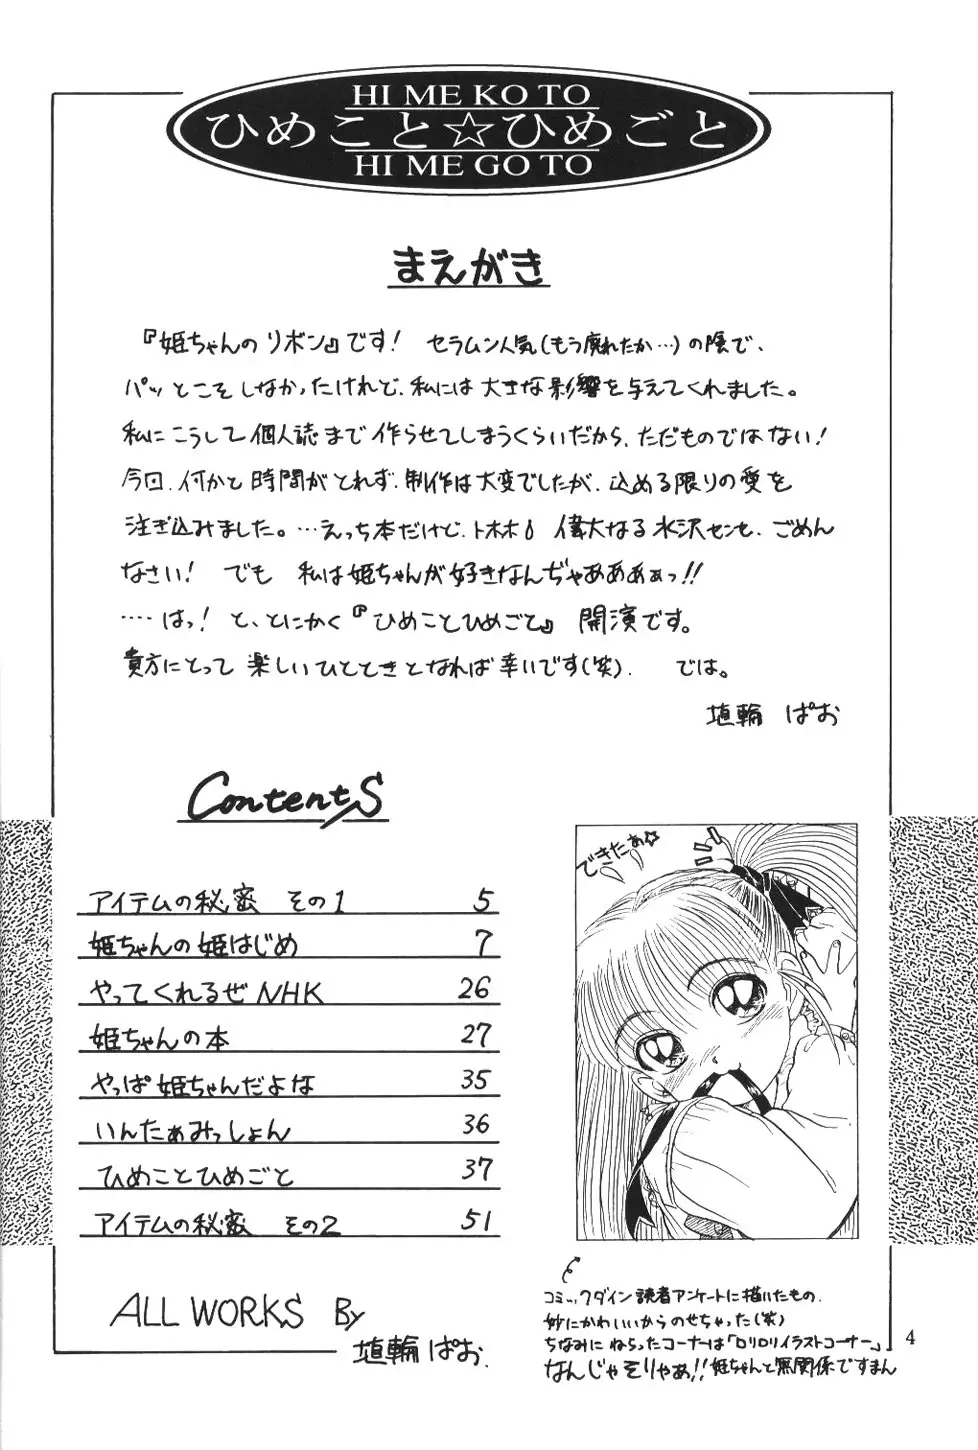 HI ME KO TO
ひめこと☆ひめごと
HI ME GO TO
まえがき
『姫ちゃんのリボン』です! セラムン人気(もう廃れたか…)の陰で、
パッとこそしなかったけれど、私には大きな影響を与えてくれました。
私にこうして個人誌まで作らせてしまうくらいだから、ただものではない!
今回、何かと時間がとれず、制作は大変でしたが、込める限りの愛を
注ぎ込みました。…えっち本だけど、トホホ 偉大なる水沢センセ、ごめん
なさい! でも 私は姫ちゃんが好きなんぢゃあああぁっ!!
‥‥はっ! と、とにかく『ひめことひめごと』 開演です。
貴方にとって楽しいひとときとなれば幸いです(笑). では。
埴輪 ぱお
ContentS
アイテムの秘密 その1 5
姫ちゃんの姫はじめ 7
やってくれるぜNHK 26
姫ちゃんの本 27
やっぱ姫ちゃんだよな 35
いんたぁみっしょん 36
ひめことひめごと 37
アイテムの秘密 その2 51
ALL WORKS By
埴輪ぱお.
できたぁ☆
コミックダイン読者アンケートに描いたもの.
妙にかわいいからのせちゃった(笑)
ちなみにねらったコーナーは「ロリロリイラストコーナー」
なんじゃそりゃあ!! 姫ちゃんと無関係ですまん
4